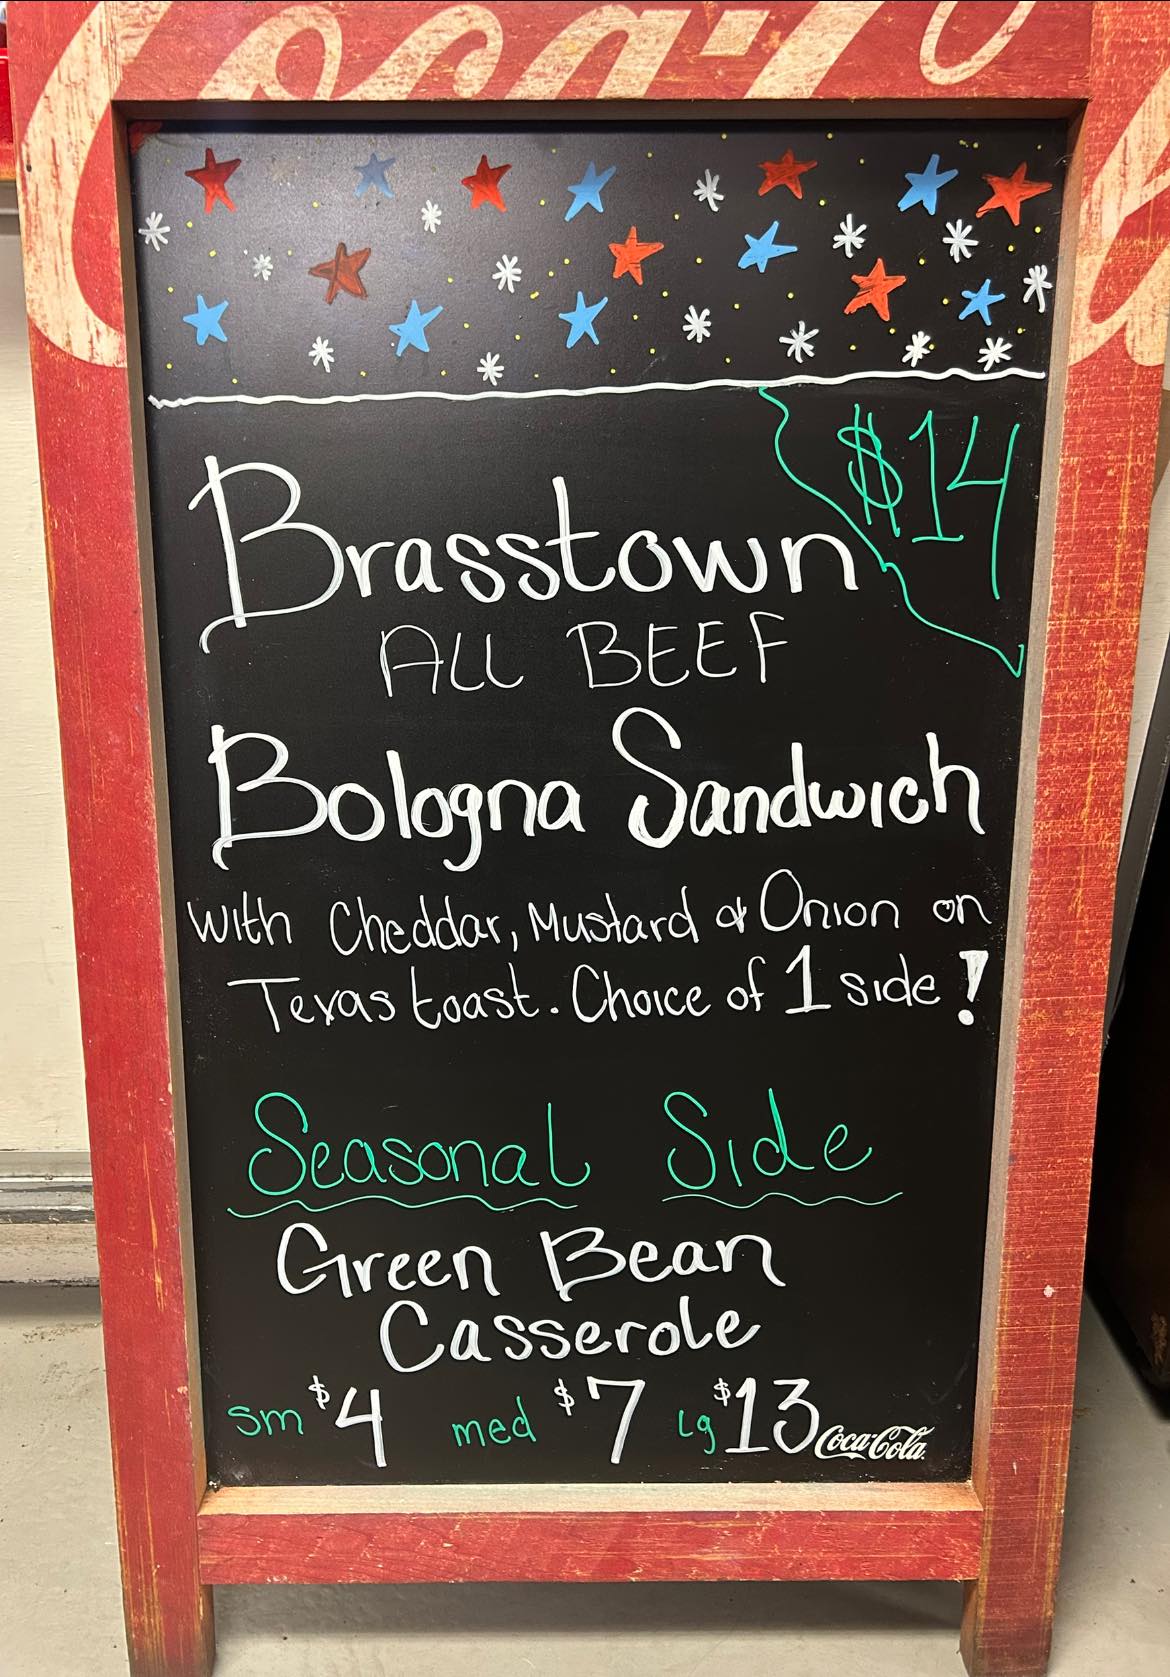 Coca-Co
$14
Brasstown
ALL BEEF
Bologna Sandwich
with Cheddar, Mustard & Onion on
Texas toast. Choice of 1 side!
Seasonal Side
Green Bean
Casserole
sm $4 med $7 lg $13 Coca-Cola